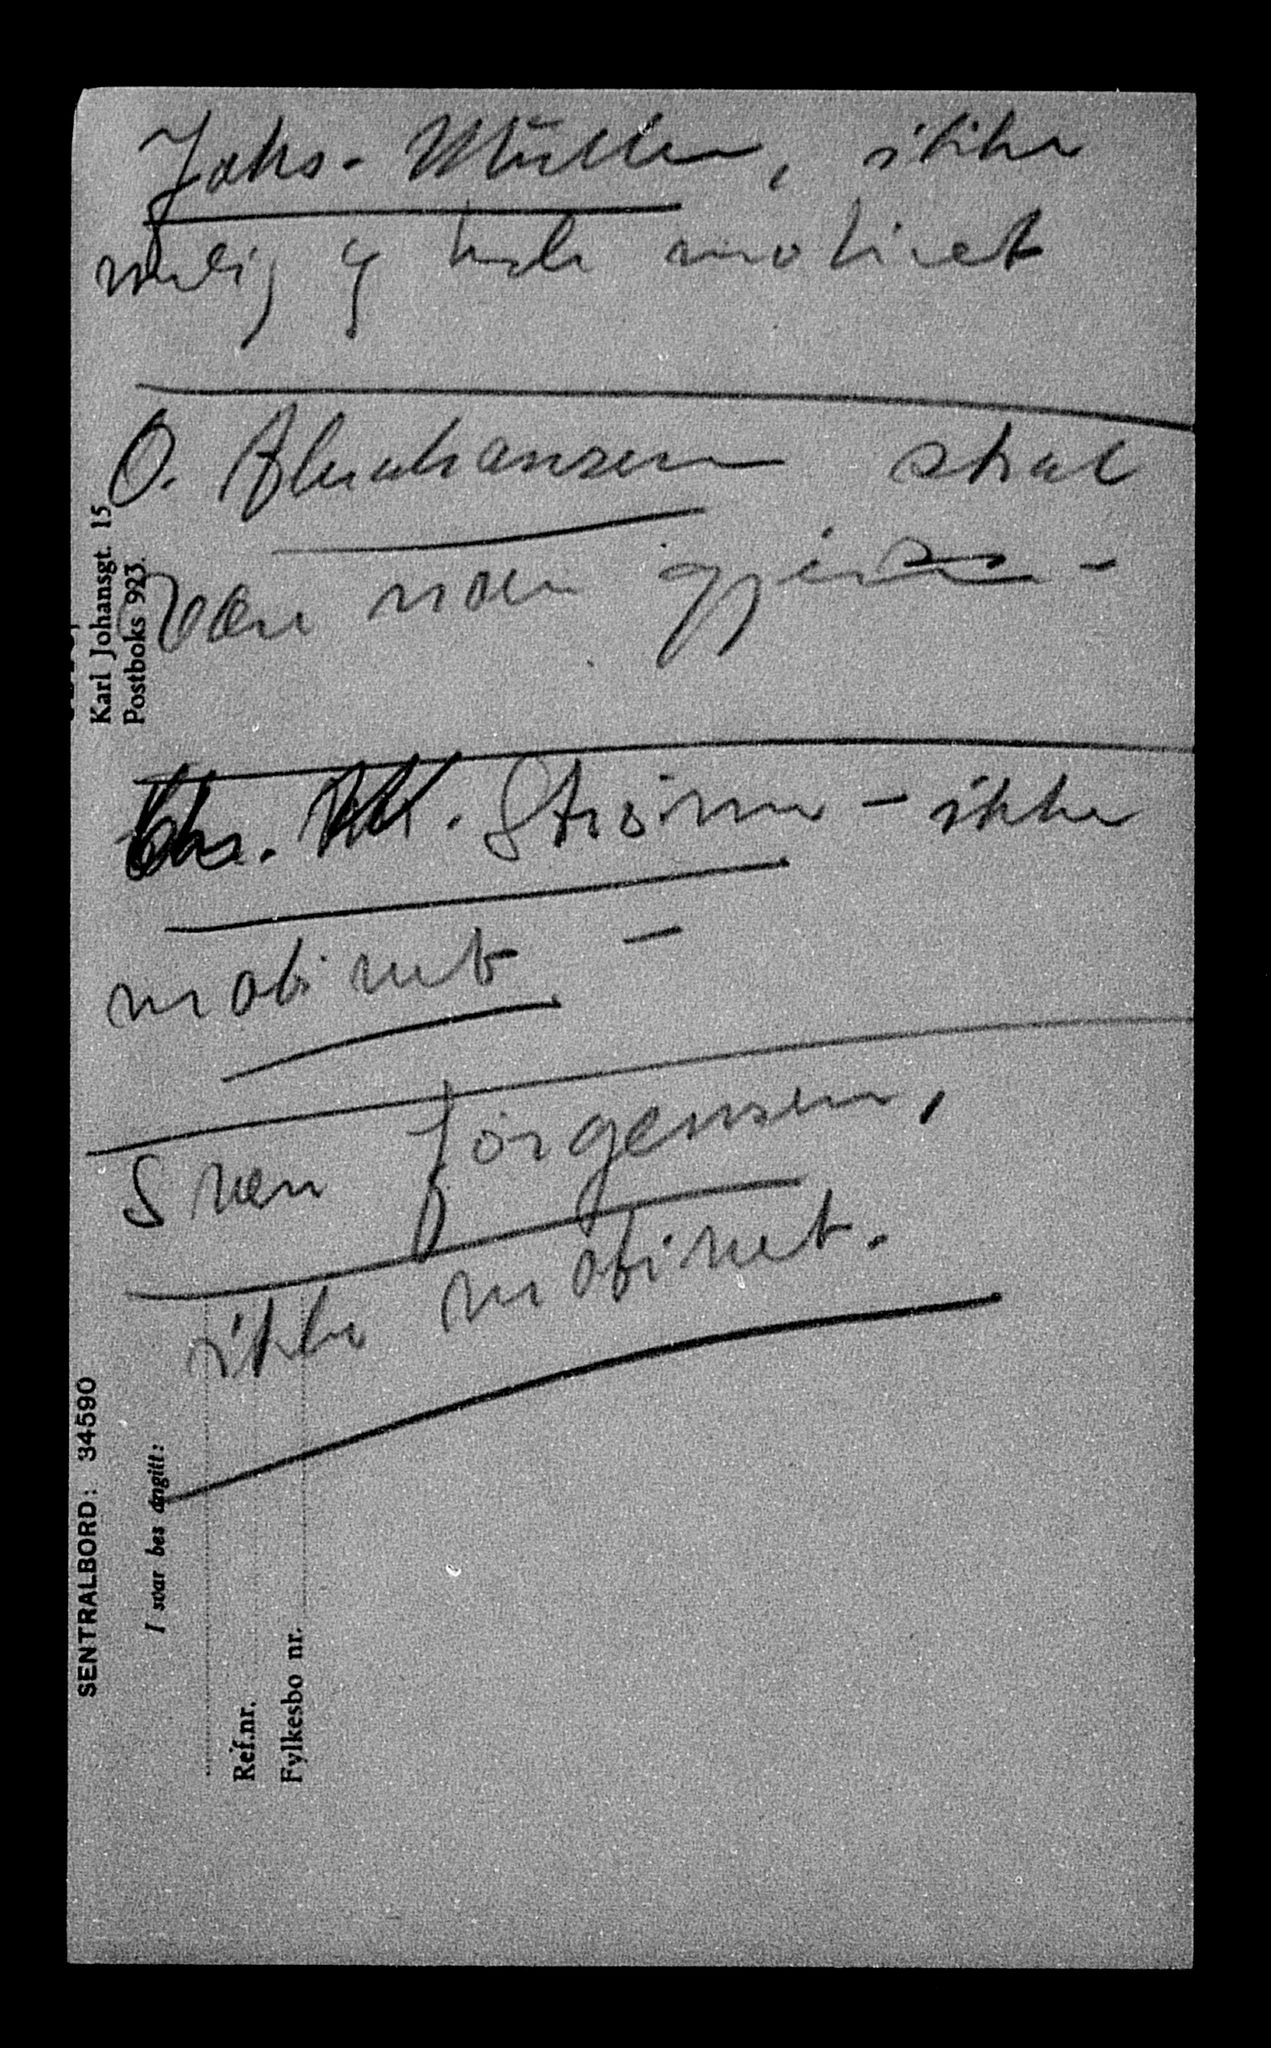 Johs. Müller, ikke
mulig å finde motivet
O. Abrahansen skal
være noen
Chs. Strøm – ikke
motivet –
Sven Jørgensen,
ikke motivet.
Karl Johansgt. 15
Postboks 923.
SENTRALBORD: 34590
I svar bes angitt:
Ref.nr.
Fylkesbo nr.